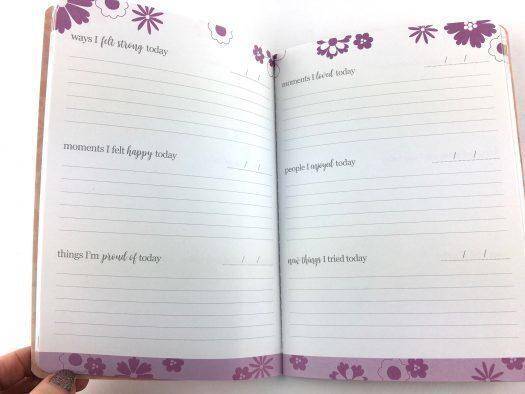 ways I felt strong today
/ /
moments I felt happy today
/ /
things I'm proud of today
/ /
moments I loved today
/ /
people I enjoyed today
/ /
new things I tried today
/ /